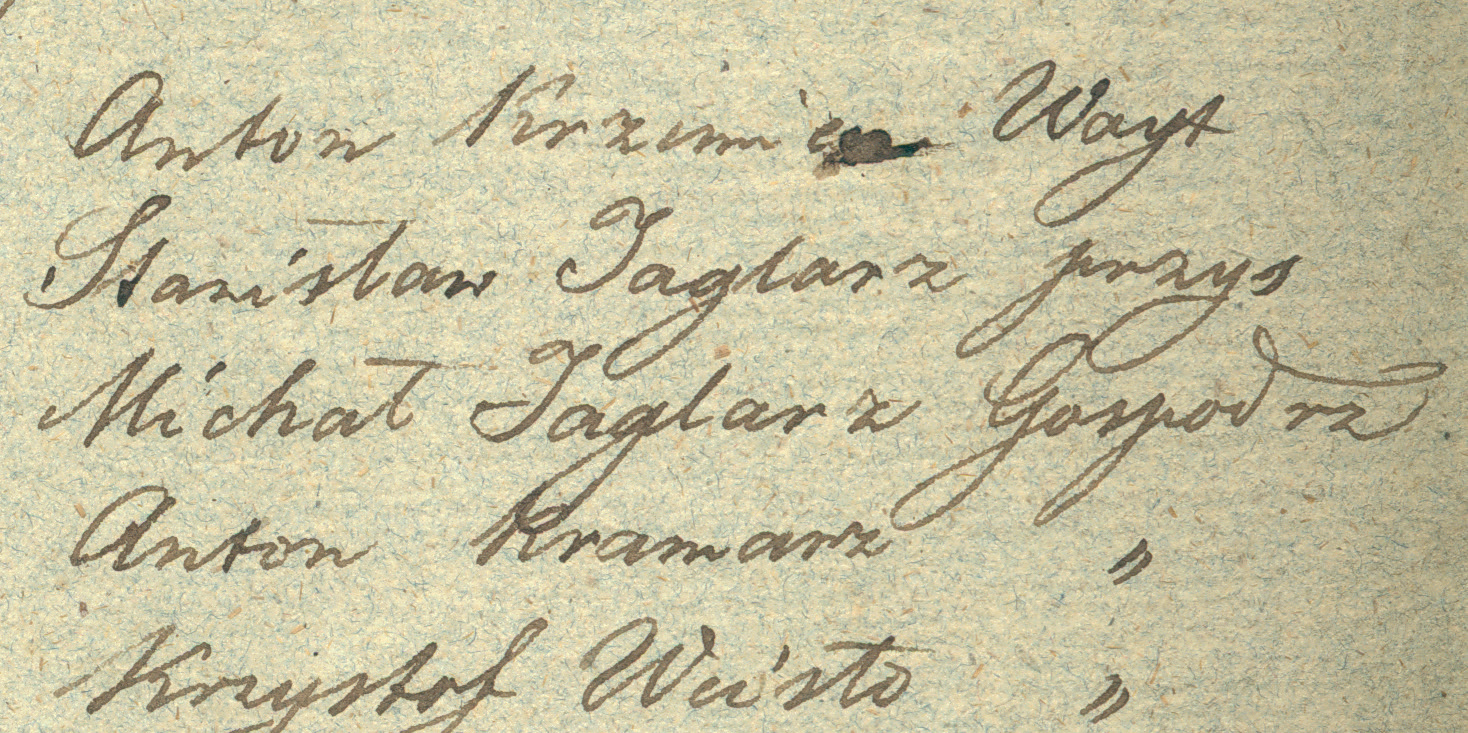 Anton Krzemie Wayt
Stanisław Jaglarz przys
Michał Jaglarz Gospodrz
Anton Kramarz "
Krzystof Weisło "